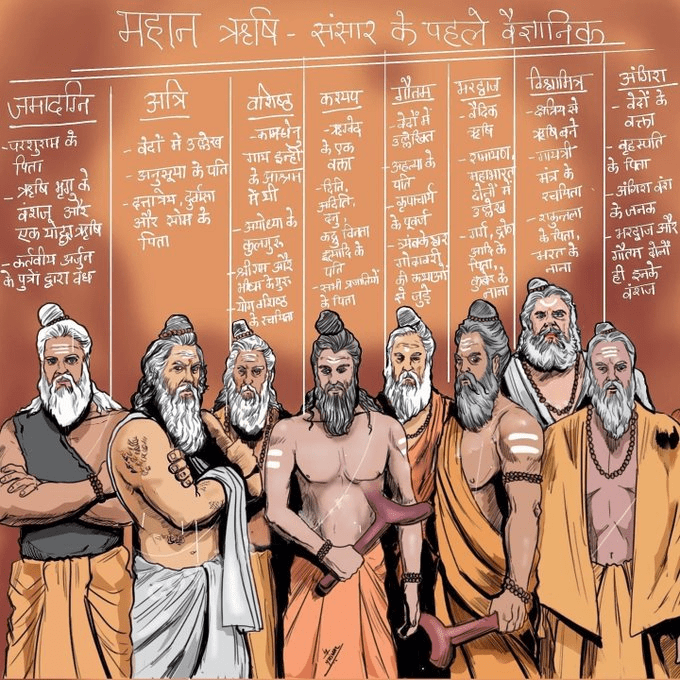 महान ऋषि - संसार के पहले वैज्ञानिक
जमादग्नि
- परशुराम के
पिता
- ऋषि भृगु के
वंशज और
एक योद्धा ऋषि
- कर्तवीय अर्जुन
के पुत्रो द्वारा वध
अत्रि
- वेदों में उल्लेख
- अनुसूया के पति
- दत्तात्रेय, दुर्वासा
और सोम के
पिता
वशिष्ठ
- कामधेनु
गाय इन्ही
के आश्रम
में थी
- अयोध्या के
कुलगुरु
- श्रीराम और
भीष्म के गुरु
- योग वशिष्ठ
के रचयिता
कश्यप
- ऋग्वेद
के एक
वक्ता
- दिति,
अदिति,
दनु,
कद्रु, विनता
इत्यादि के
पति
- सभी प्रजातियों
के पिता
गौतम
- वेदों में
उल्लेखित
- अहल्या के
पति
- कृपाचार्य
के पूर्वज
- त्र्यंबकेश्वर
गोदावरी
की कथाओं
से जुड़े
भरद्वाज
- वैदिक
ऋषि
- रामायण,
महाभारत
दोनों में
उल्लेख
- गर्ग, द्रोण
आदि के
पिता,
कुबेर के
नाना
विश्वामित्र
- क्षत्रिय से
ऋषि बने
- गायत्री
मंत्र के
रचयिता
- शकुन्तला
के पिता,
भरत के
नाना
अंगिरा
- वेदों के
वक्ता
- बृहस्पति
के पिता
- अंगिरा वंश
के जनक
- भरद्वाज और
गौतम दोनों
ही इनके
वंशज